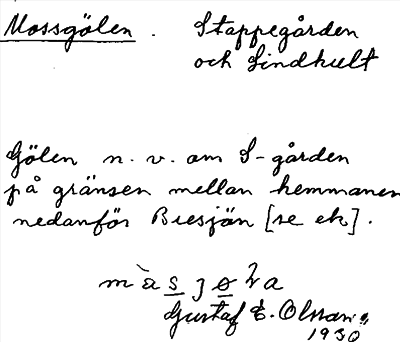 Mossgölen. Stappegården
och Lindhult
Gölen n. v. om S-gården
på gränsen mellan hemmanen
nedanför Buesjön [se ek].
Gustaf E. Olsson
1930